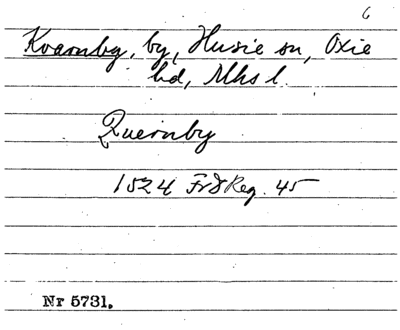 6
Kvarnby, by, Husie sn, Oxie
hd, Mhs l.
Quernby
1524 Fr I Reg. 45
Nr 5731.